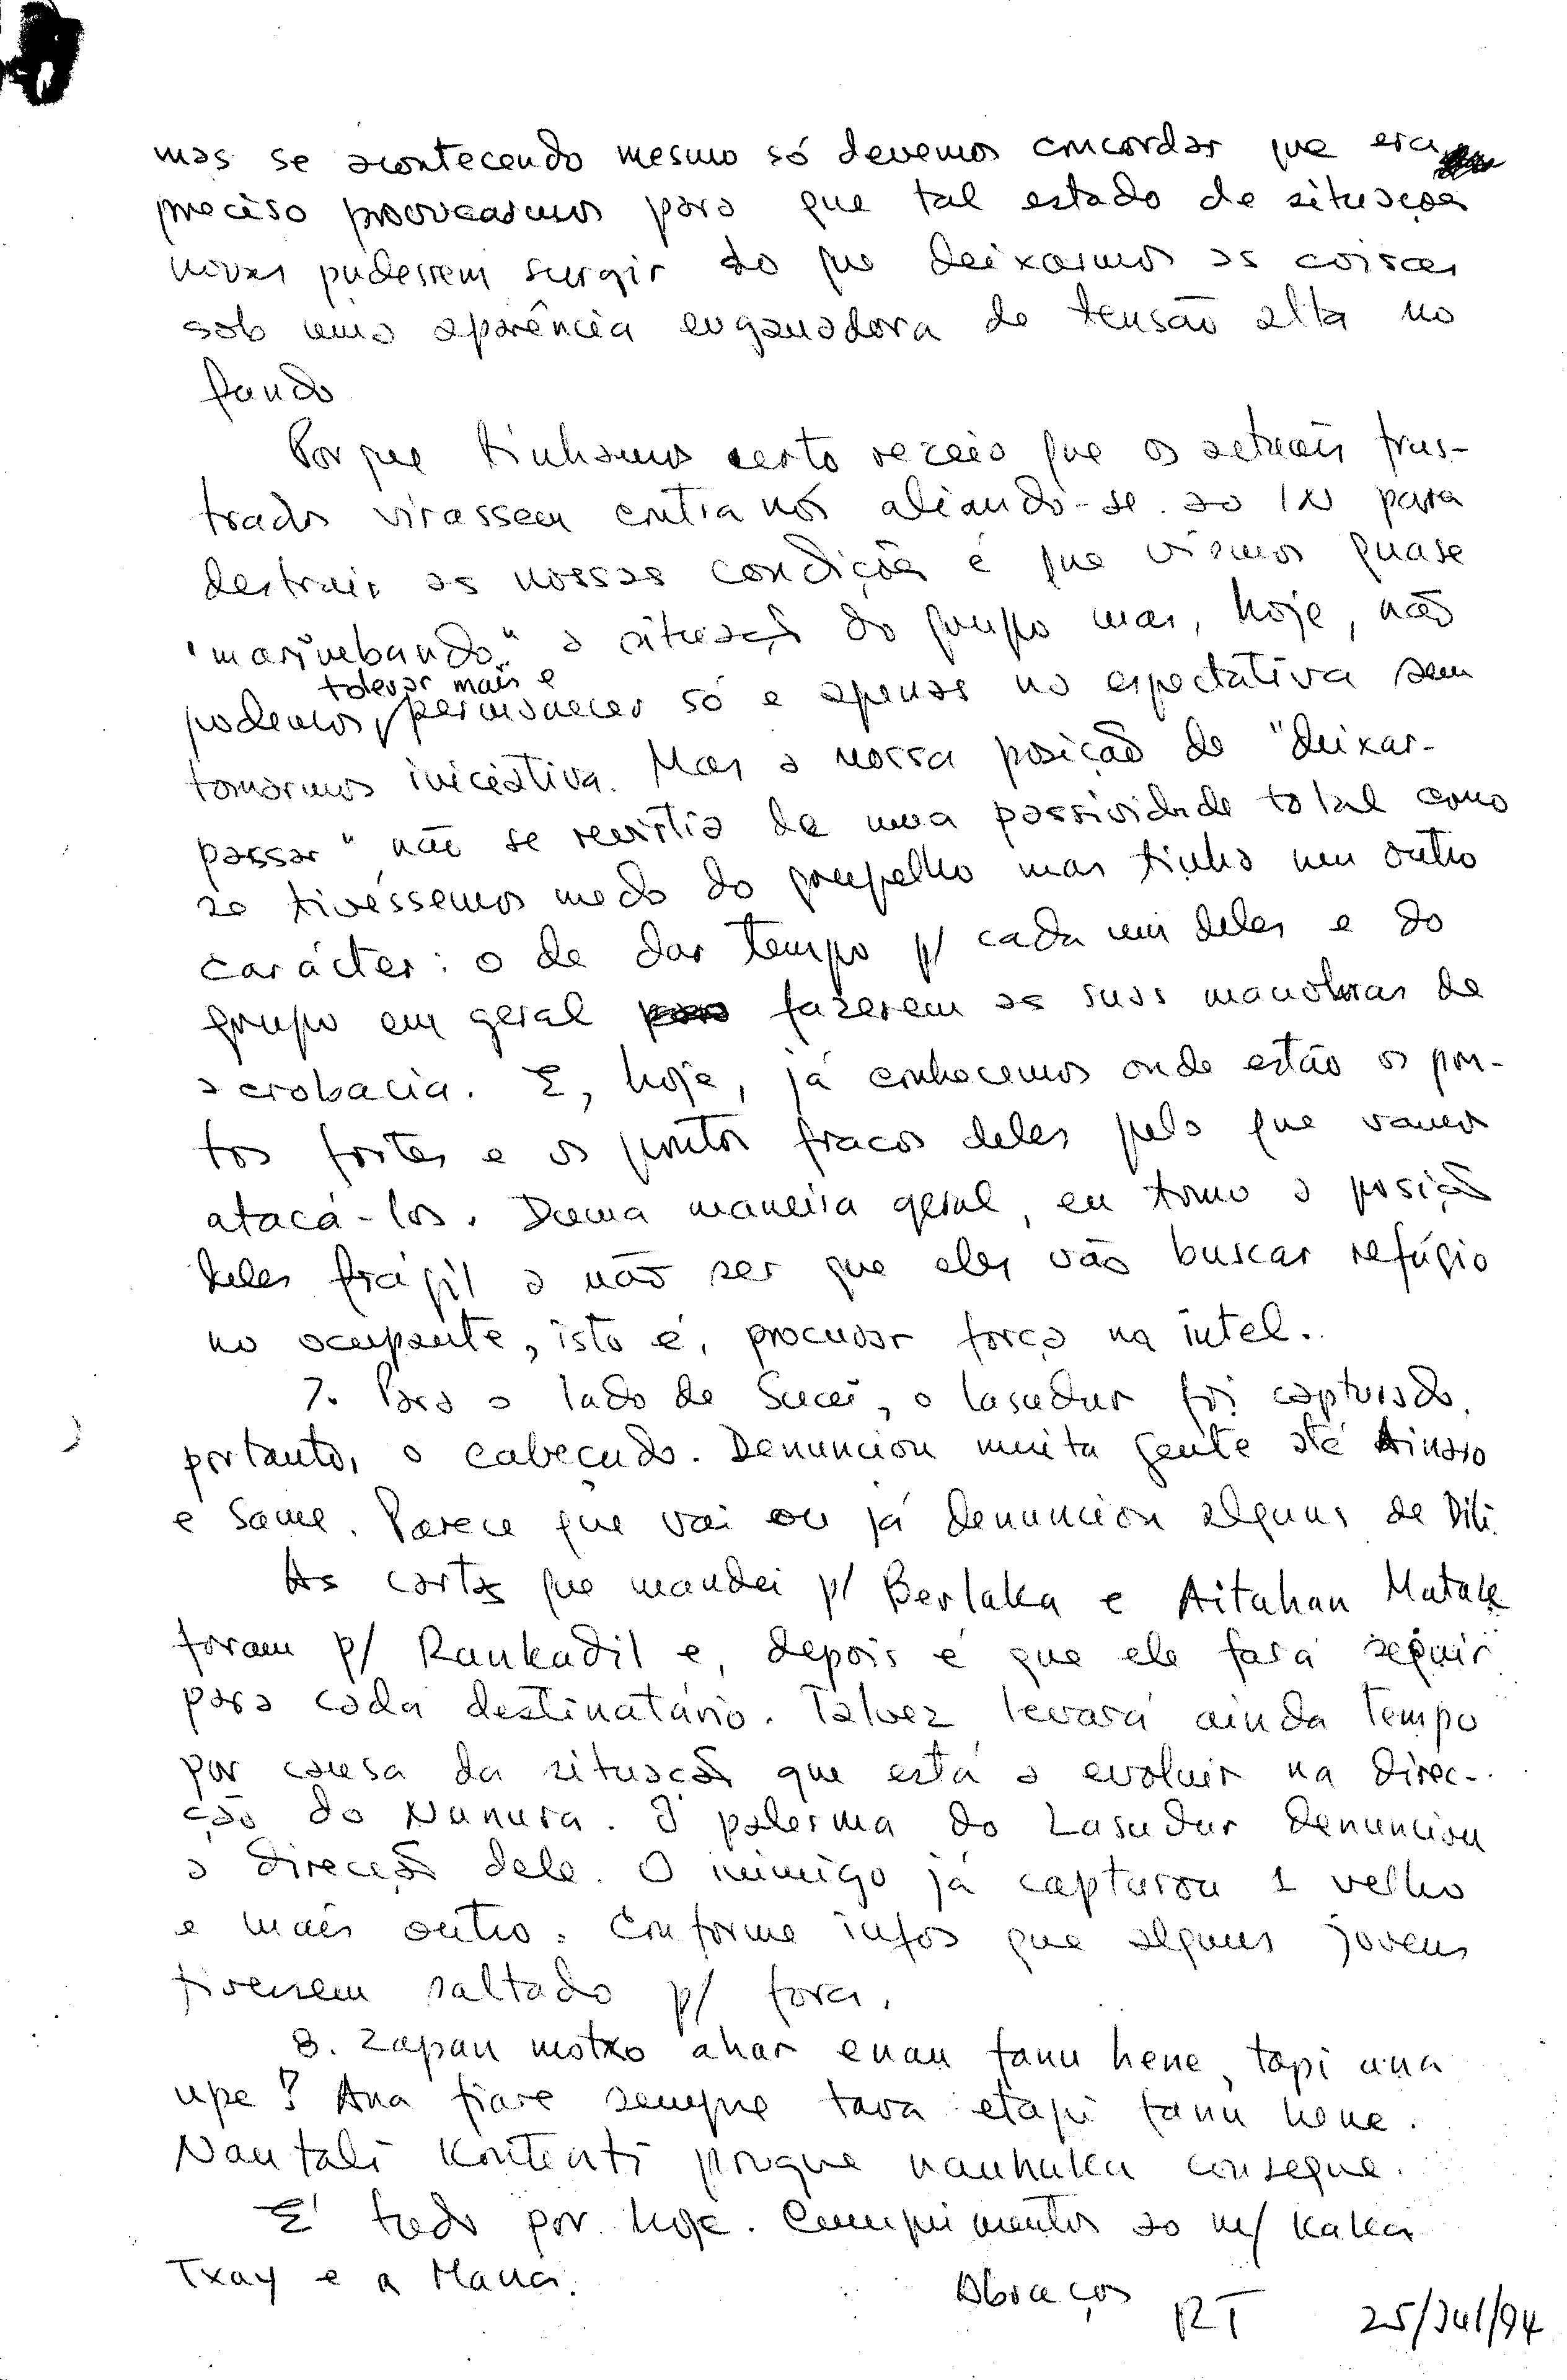 mas se acontecendo mesmo só devemos concordar que era
preciso provocarmos para que tal estado de situações
novas pudessem surgir do que deixarmos as coisas
sob uma aparência enganadora de tensão alta no
fundo
Porque tinhamos certo receio que os actuais frus-
trados virassem contra nós aliando-se ao IN para
destruir as nossas condições é que viamos quase
"marimbando" a situação do grupo mas, hoje, não
podemos tolerar mais e permanecer só e apenas na espectativa sem
tomarmos iniciativa. Mas a nossa posição de "deixar-
passar" não se revistia de uma passividade total como
se tivéssemos medo do grupelho mas tinha um outro
carácter: o de dar tempo p/ cada um deles e do
grupo em geral fazerem as suas manobras de
acrobacia. E, hoje, já conhecemos onde estão os pon-
tos fortes e os pontos fracos deles pelo que vamos
atacá-los. Duma maneira geral, eu tomo a posição
deles frágil a não ser que eles vão buscar refúgio
no ocupante, isto é, procurar força na intel.
7. Para o lado de Sucai, o Lasudur foi capturado,
portanto, o cabeçudo. Denunciou muita gente até Ainaro
e Same. Parece que vai ou já denunciou alguns de Dili.
As cartas que mandei p/ Berlaka e Aitahan Matak
foram p/ Rankadil e, depois é que ele fará seguir
para cada destinatário. Talvez levará ainda tempo
por causa da situação que está a evoluir na direc-
ção do Nunura. O palerma do Lasudur denunciou
a direcção dele. O inimigo já capturou 1 velho
e mais outro. Conforme infos que alguns jovens
tivessem saltado p/ fora.
8. Zapan motxo ahar enau fanu hene, tapi ana
upe? Ana fiare sempre tava etapi fanu hene.
Nautali Kontenti porque nauhaka consegue.
É tudo por hoje. Cumprimentos ao m/ Kaka
Txay e a Mana.
Abraços
RT 25/Jul/94